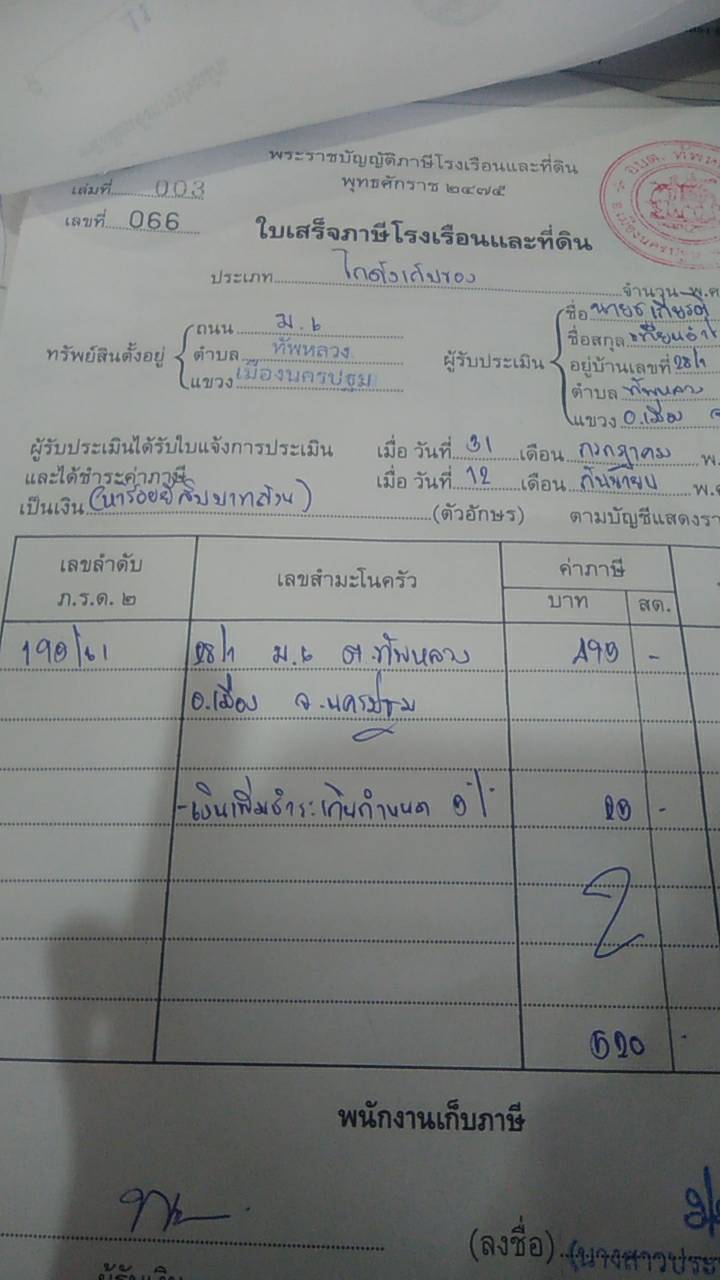 พระราชบัญญัติภาษีโรงเรือนและที่ดิน
พุทธศักราช ๒๔๗๕
เล่มที่ 003
เลขที่ 066
ใบเสร็จภาษีโรงเรือนและที่ดิน
ประเภท โกดังเก็บของ
จำนวน พ.ศ
ทรัพย์สินตั้งอยู่
ถนน ม.๖
ตำบล ทัพหลวง
แขวง เมืองนครปฐม
ผู้รับประเมิน
ชื่อ
ชื่อสกุล
อยู่บ้านเลขที่ 28/1
ตำบล ทัพหลวง
แขวง อ.เมือง จ
ผู้รับประเมินได้รับใบแจ้งการประเมิน เมื่อ วันที่ 31 เดือน กรกฎาคม พ.
และได้ชำระค่าภาษี เมื่อ วันที่ 12 เดือน กันยายน พ.ศ
เป็นเงิน (ห้าร้อยยี่สิบบาทถ้วน) (ตัวอักษร) ตามบัญชีแสดงรา
เลขลำดับ ภ.ร.ด. ๒
เลขสำมะโนครัว
ค่าภาษี
บาท สต.
28/1 ม.๖ ต.ทัพหลวง -
อ.เมือง จ.นครปฐม
-เงินเพิ่มชำระเกินกำหนด -
520
พนักงานเก็บภาษี
(ลงชื่อ)
(นางสาวประ
ผู้รับเงิน